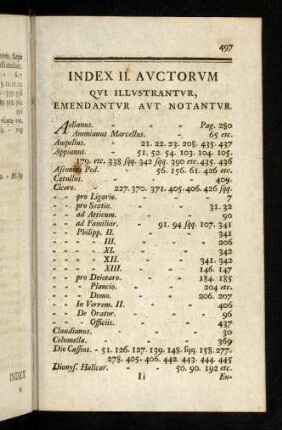 497
INDEX II. AVCTORVM
QVI ILLVSTRANTVR,
EMENDANTVR AVT NOTANTVR.
Aelianus. - - - Pag. 280
Ammianus Marcellus. - - 65 etc.
Ampelius. - - 21. 22. 23. 208. 435. 437
Appianus. - 51. 52. 54. 103. 104. 105.
179. etc. 338 sqq. 342 sqq. 390 etc. 435. 436
Asinnius Ped. - 56. 156. 61. 426 etc.
Catullus. - - - 409.
Cicero. - 227. 370. 371. 405. 406. 426 sqq.
- - pro Ligario. - - 7
- - pro Sextio. - - 31. 32
- - ad Atticum. - - 90
- - ad Familiar. - 91. 94 sqq. 107. 341
- - Philipp. II. - - 341
- - - III. - - 206
- - - XI. - - 342
- - - XII. - - 341. 342
- - - XIII. - - 146. 147
- - pro Deiotaro. - - 184. 185
- - Plancio. - - 204 etc.
- - Domo. - - 206. 207
- - In Verrem. II. - - 406
- - De Orator. - - 96
- - Officiis. - - 437
Claudianus. - - - 30
Columella. - - - 369
Dio Cassius. - 51. 126. 127. 139. 148. sqq. 158. 277.
278. 405. 406. 442. 443. 444. 445
Dionys. Halicar. - 50. 90. 192 etc.
Ii
En-
INDEX